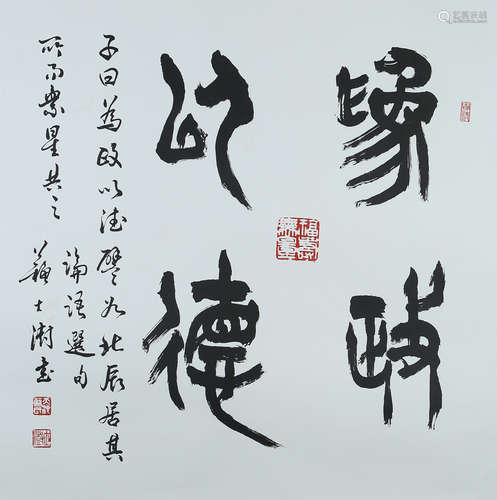 為政
以德
子曰為政以德譬如北辰居其
所而眾星共之
論語選句
蘇士澍書
福壽無量